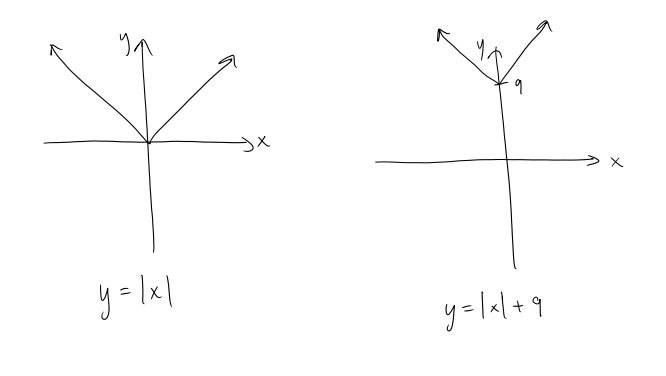 y
x
y = |x|
y
9
x
y = |x| + 9